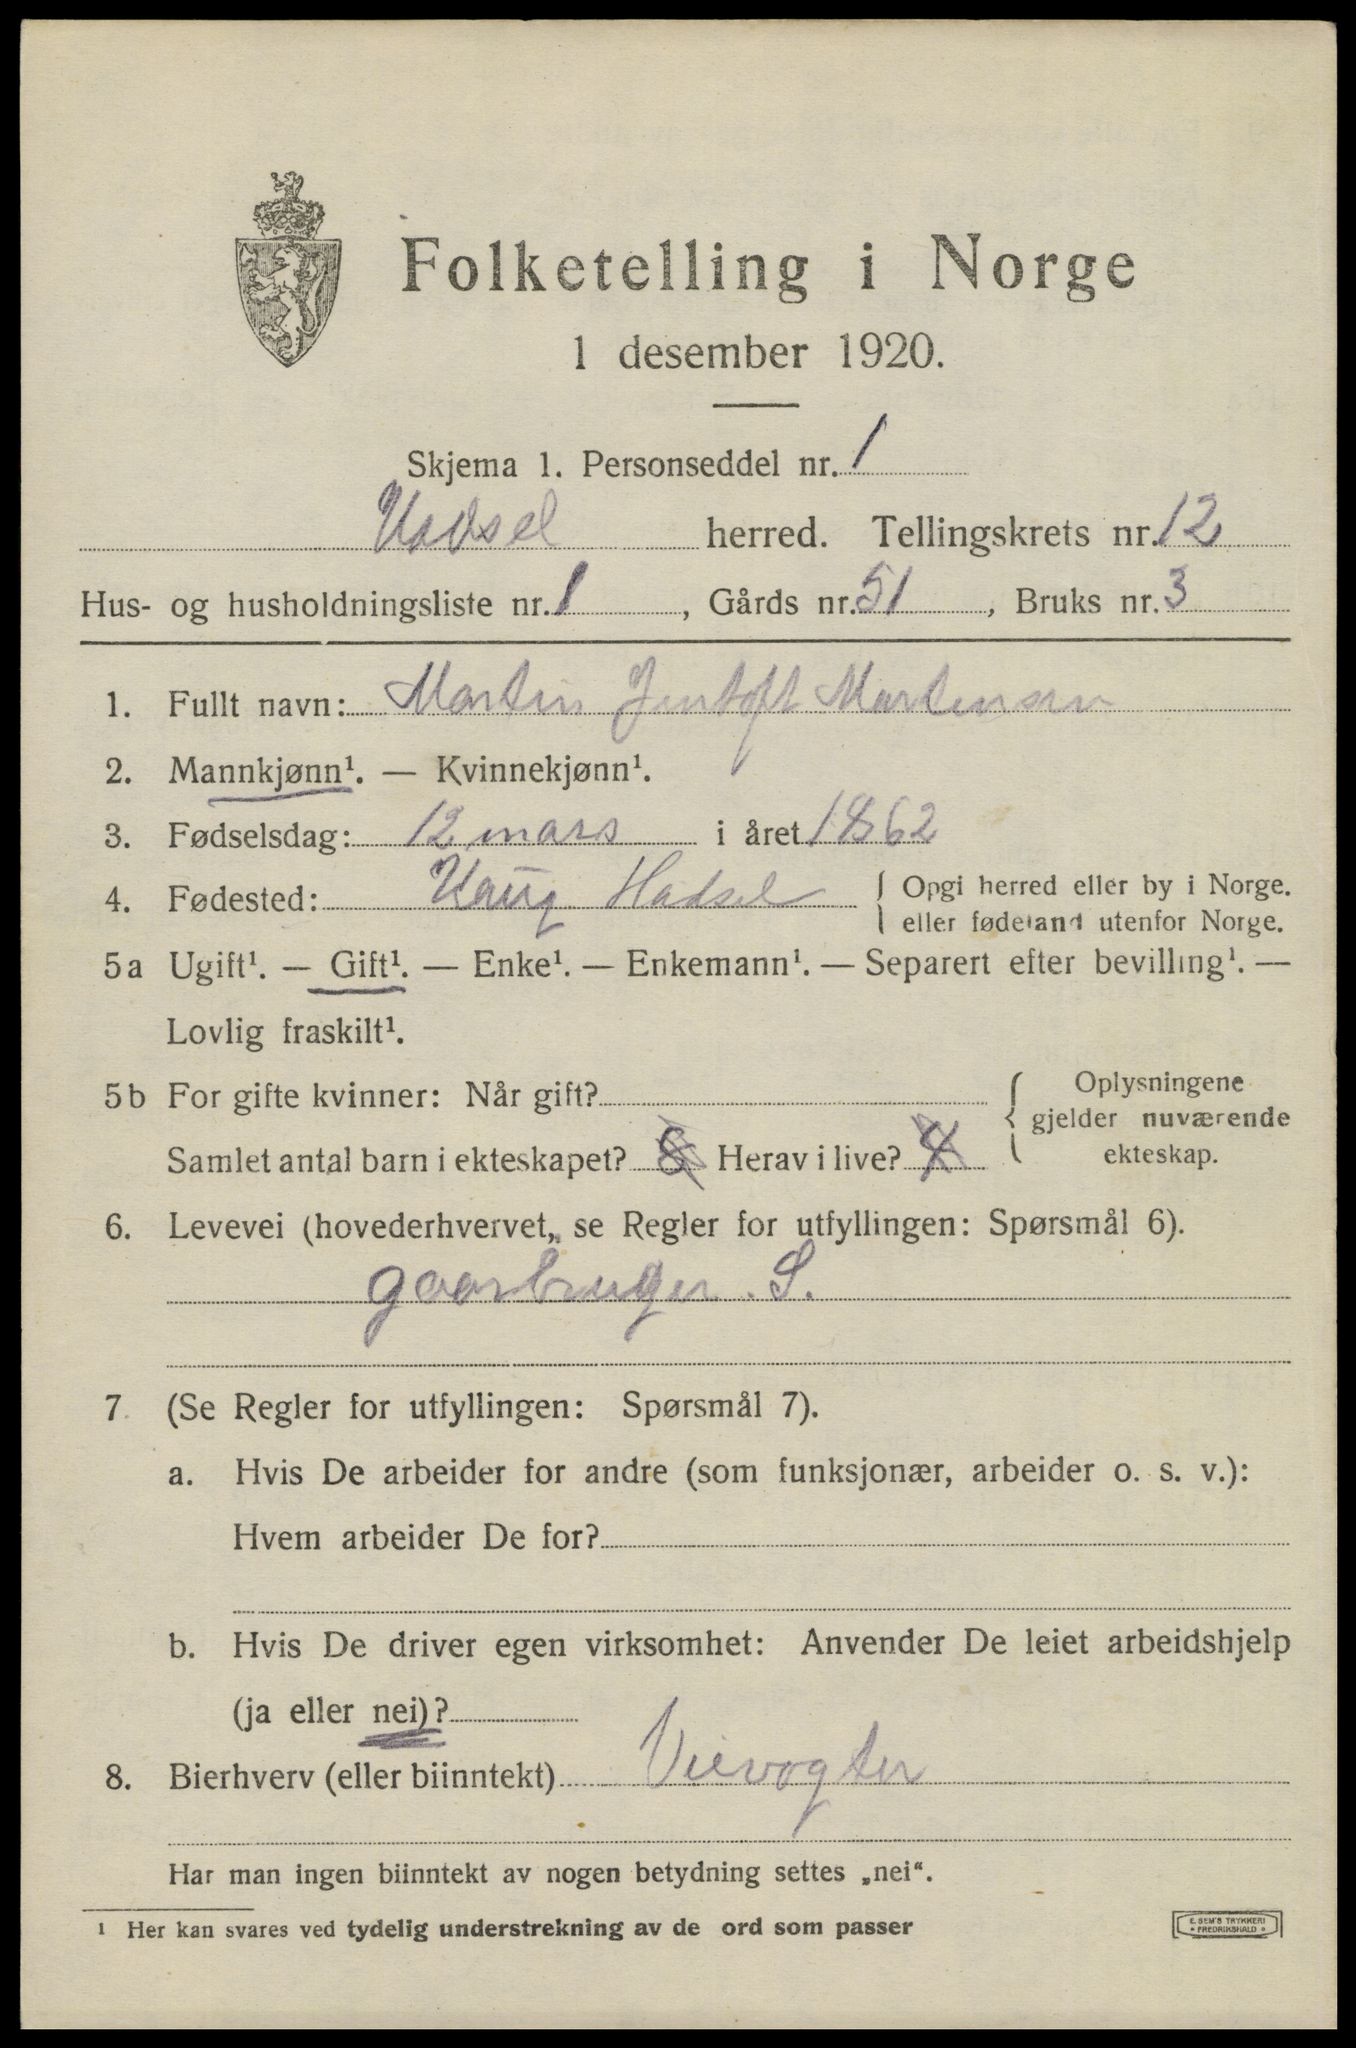 Folketelling i Norge
1 desember 1920.
Skjema 1. Personseddel nr. 1
Hadsel herred. Tellingskrets nr. 12
Hus- og husholdningsliste nr. 1, Gårds nr. 51, Bruks nr. 3
1. Fullt navn: Martin Jentoft Martensen
2. Mannkjønn¹. — Kvinnekjønn¹.
3. Fødselsdag: 12 mars i året 1862
4. Fødested: Haug Hadsel { Opgi herred eller by i Norge.
eller fødeland utenfor Norge.
5a Ugift¹. — Gift¹. — Enke¹. — Enkemann¹. — Separert efter bevilling¹. —
Lovlig fraskilt¹.
5b For gifte kvinner: Når gift?
Samlet antal barn i ekteskapet? 8 Herav i live? 4
{ Oplysningene
gjelder nuværende
ekteskap.
6. Levevei (hovederhvervet, se Regler for utfyllingen: Spørsmål 6).
gaarbruger. S.
7. (Se Regler for utfyllingen: Spørsmål 7).
a. Hvis De arbeider for andre (som funksjonær, arbeider o. s. v.):
Hvem arbeider De for?
b. Hvis De driver egen virksomhet: Anvender De leiet arbeidshjelp
(ja eller nei)?
8. Bierhverv (eller biinntekt) Veivogter
Har man ingen biinntekt av nogen betydning settes „nei“.
¹ Her kan svares ved tydelig understrekning av de ord som passer
E. SEM'S TRYKKERI
• FREDRIKSHALD •